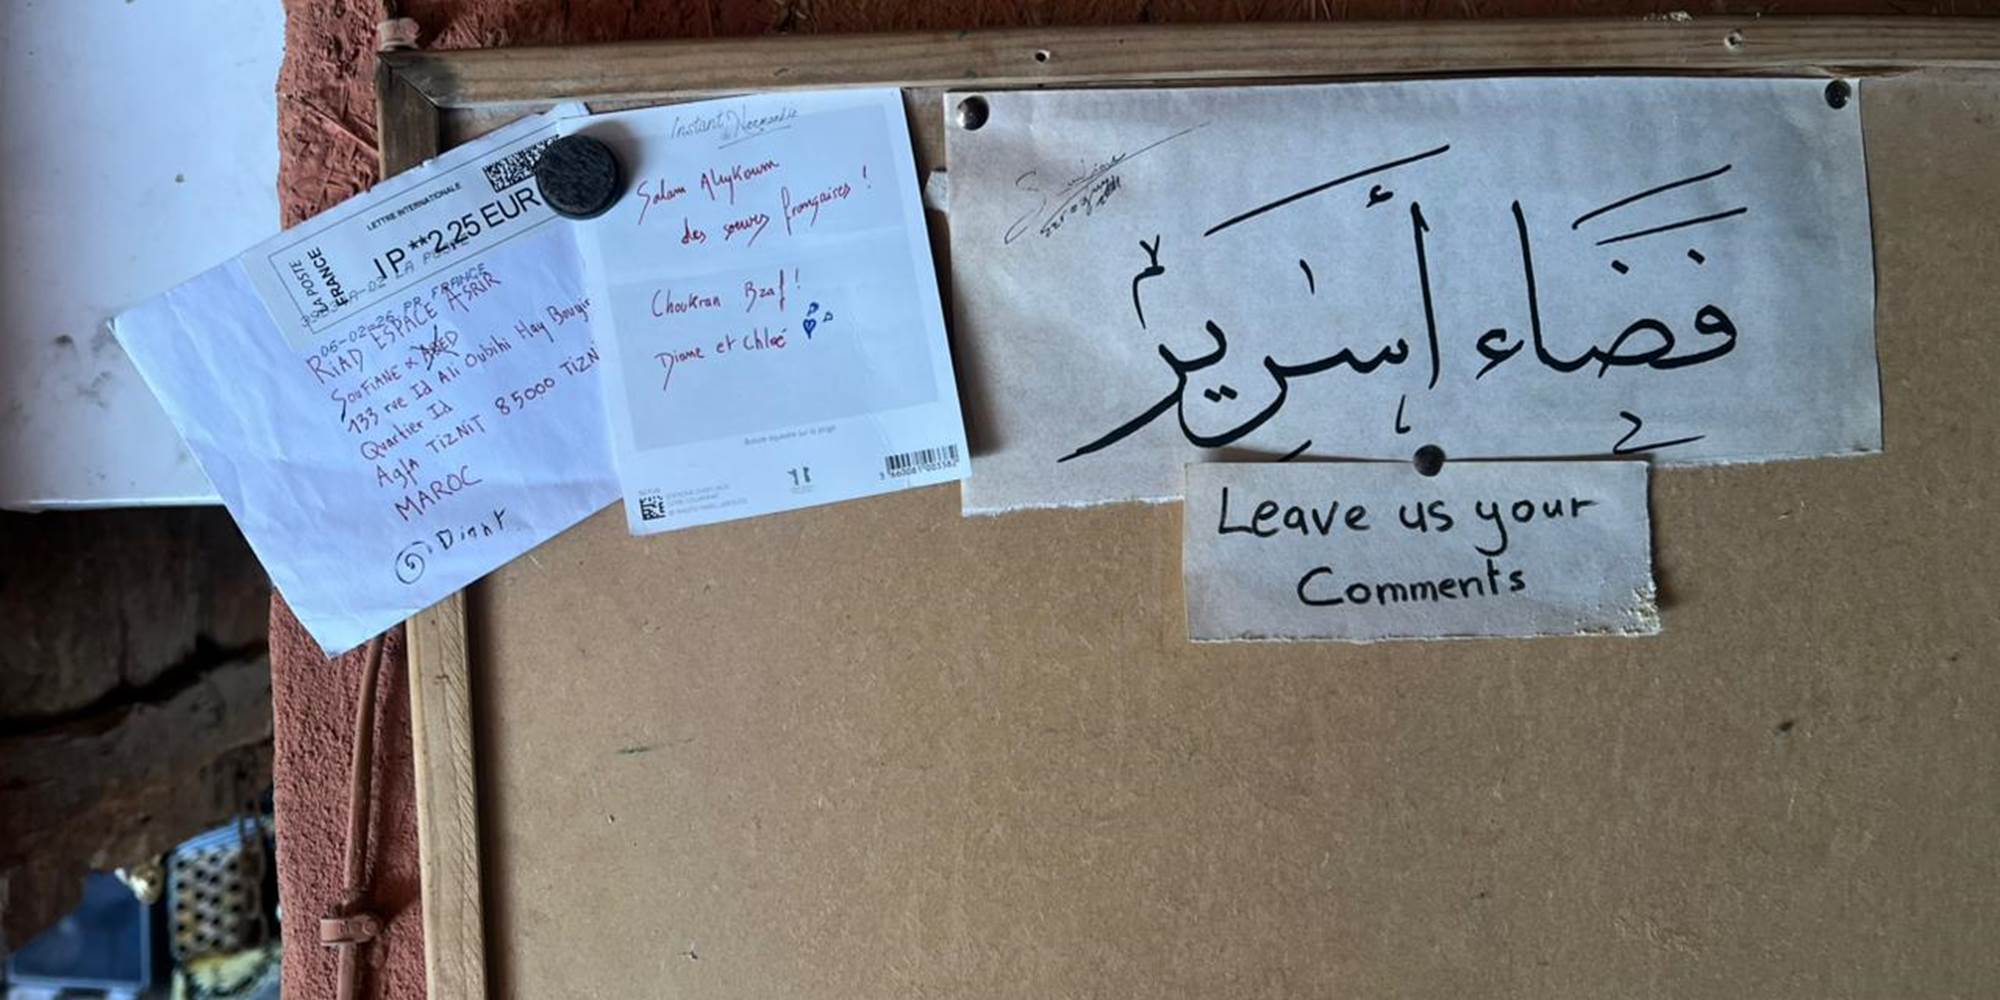 LETTRE INTERNATIONALE
LA POSTE
FRANCE
IP**2,25 EUR
LA POSTE
06-02-26 PR FRANCE
RIAD ESPACE ASRIR
SOUFIANE & ABED
133 rue Id Ali Oubihi Hay Bougir
Quartier Id
Agfa TIZNIT 85000 TIZNI
MAROC
Instant de Normandie
Salam Aleykoum
des soeurs françaises !
Choukran Bzaf !
Diane et Chloé
3 660081 003382
فضاء أسرير
Leave us your
Comments